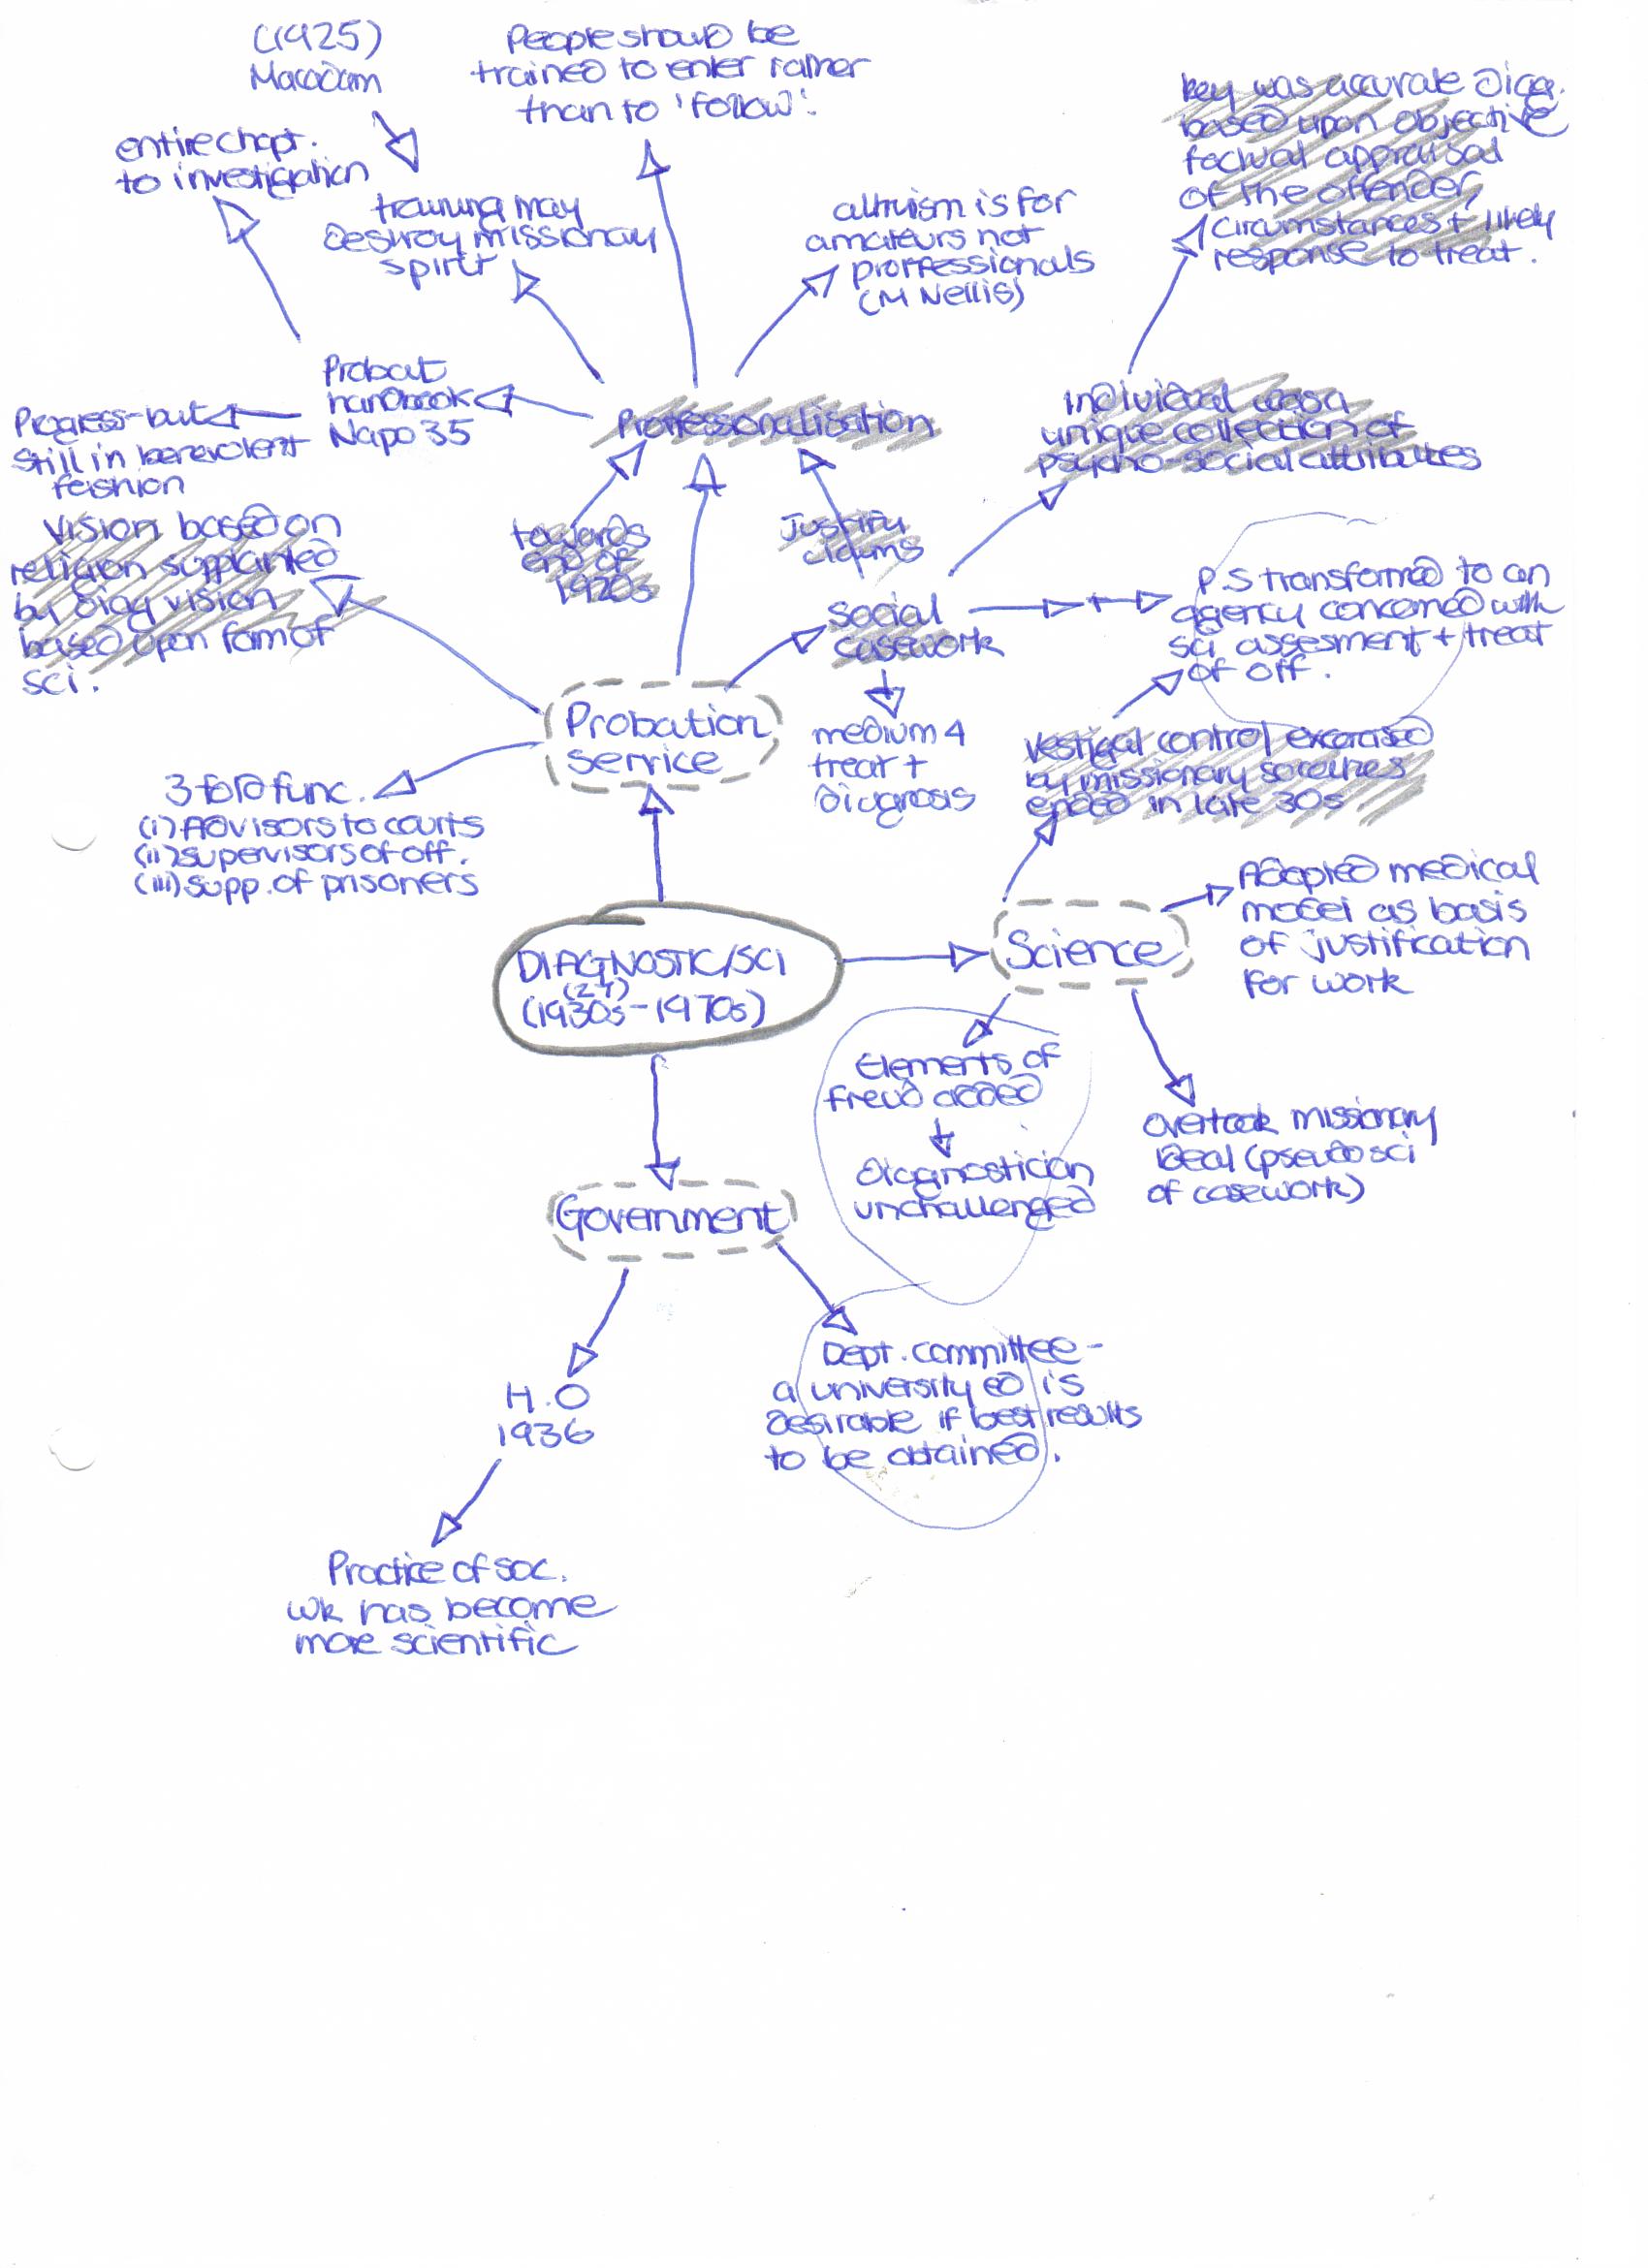 (1925)
Macadam
People should be
trained to enter rather
than to 'follow'.
key was accurate diag.
based upon objective
factual appraisal
of the offender,
circumstances + likely
response to treat.
entire chapt.
to investigation
training may
destroy missionary
spirit
altruism is for
amateurs not
proffessionals
(M Nellis)
Probat
handbook
Napo 35
Progress - but
still in benevolent
fashion
Proffessionalisation
Individual was a
unique collection of
psycho-social attributes
towards
end of
1920s
Justify
claims
Vision based on
religion supplanted
by diag vision
based upon form of
sci.
social
casework
P.S transformed to an
agency concerned with
sci assesment + treat
of off.
Probation
service
medium 4
treat +
diagnosis
Vestigal control excercised
by missionary soceities
ended in late 30s
3 fold func.
(i) Advisors to courts
(ii) supervisors of off.
(iii) supp. of prisoners
Adopted medical
model as basis
of justification
for work
DIAGNOSTIC/SCI
(24)
(1930s - 1970s)
Science
Elements of
freud added
diagnostician
unchallenged
overtook missionary
ideal (pseudo sci
of casework)
Government
H.O
1936
Dept. committee -
a university ed is
desirable if best results
to be obtained.
Practice of soc.
wk has become
more scientific